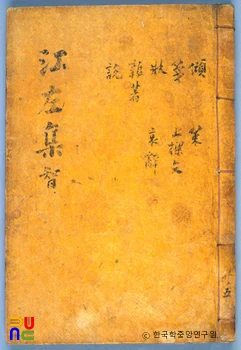 頌 策
箋 上樑文
狀 哀辭
雜著
說
江左集 智
共五
한국학중앙연구원